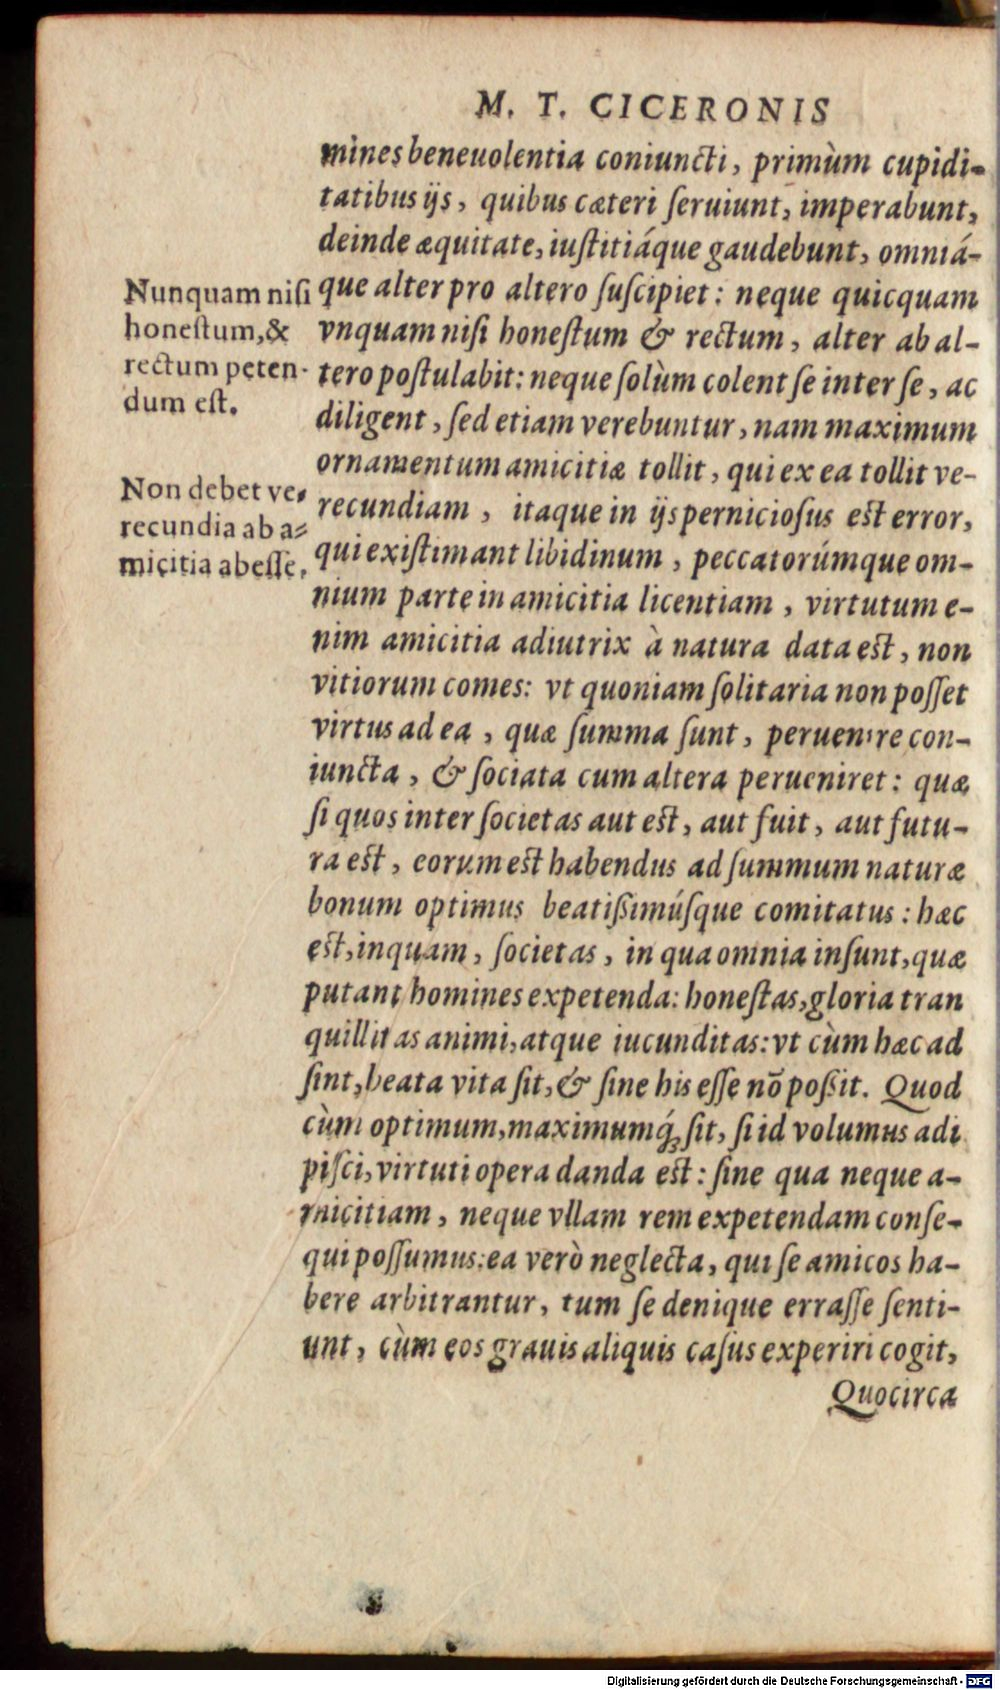 M. T. CICERONIS
mines beneuolentia coniuncti, primùm cupidi-
tatibus ijs, quibus cæteri ſeruiunt, imperabunt,
deinde æquitate, iuſtitiáque gaudebunt, omniá-
que alter pro altero ſuſcipiet: neque quicquam
vnquam niſi honeſtum & rectum, alter ab al-
tero poſtulabit: neque ſolùm colent ſe inter ſe, ac
diligent, ſed etiam verebuntur, nam maximum
ornamentum amicitiæ tollit, qui ex ea tollit ve-
recundiam, itaque in ijs pernicioſus eſt error,
qui exiſtimant libidinum, peccatorúmque om-
nium parte in amicitia licentiam, virtutum e-
nim amicitia adiutrix à natura data eſt, non
vitiorum comes: vt quoniam ſolitaria non poſſet
virtus ad ea, quæ ſumma ſunt, peruenire con-
iuncta, & ſociata cum altera perueniret: quæ
ſi quos inter ſocietas aut eſt, aut fuit, aut futu-
ra eſt, eorum eſt habendus ad ſummum naturæ
bonum optimus beatißimúſque comitatus: hæc
eſt, inquam, ſocietas, in qua omnia inſunt, quæ
putant homines expetenda: honeſtas, gloria tran
quillitas animi, atque iucunditas: vt cùm hæc ad
ſint, beata vita ſit, & ſine his eſſe nõ poßit. Quod
cùm optimum, maximumq́; ſit, ſi id volumus adi
piſci, virtuti opera danda eſt: ſine qua neque a-
micitiam, neque vllam rem expetendam conſe-
qui poſſumus: ea verò neglecta, qui ſe amicos ha-
bere arbitrantur, tum ſe denique erraſſe ſenti-
unt, cùm eos grauis aliquis caſus experiri cogit,
Quocirca
Nunquam niſi
honeſtum, &
rectum peten-
dum eſt.
Non debet ve-
recundia ab a-
micitia abeſſe.
Digitalisierung gefördert durch die Deutsche Forschungsgemeinschaft - DFG